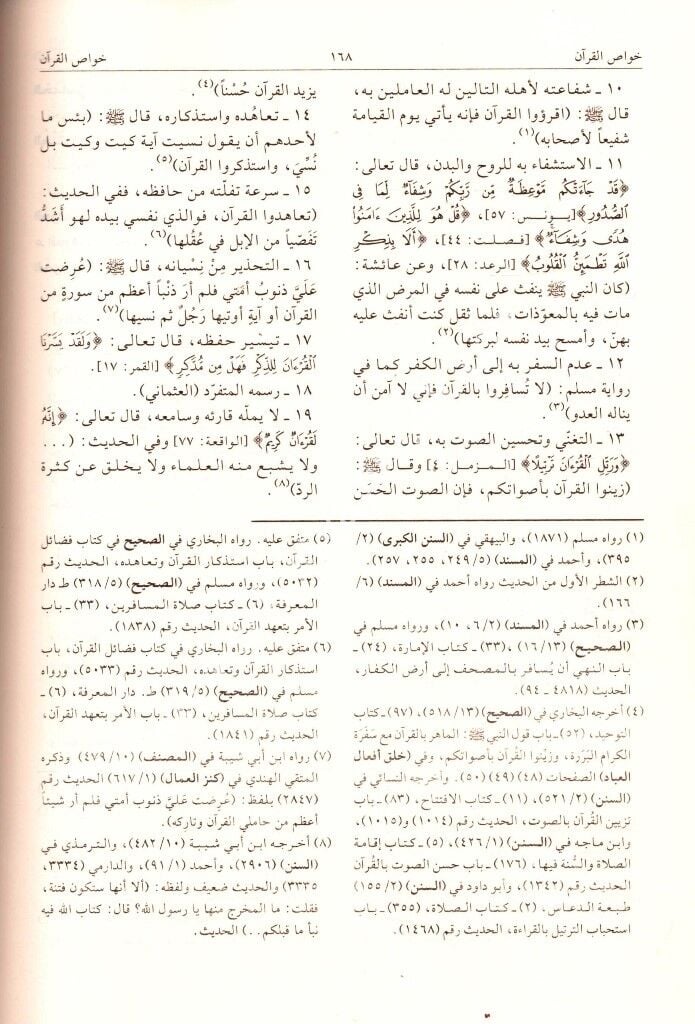 خواص القرآن
١٦٨
خواص القرآن
١٠ ـ شفاعته لأهله التالين له العاملين به،
قال ﷺ: (اقرؤوا القرآن فإنه يأتي يوم القيامة
شفيعاً لأصحابه)(١).
١١ ـ الاستشفاء به للروح والبدن، قال تعالى:
﴿قَدْ جَاءَتْكُم مَّوْعِظَةٌ مِّن رَّبِّكُمْ وَشِفَاءٌ لِّمَا فِى
الصُّدُورِ﴾ [يونس: ٥٧]، ﴿قُلْ هُوَ لِلَّذِينَ ءَامَنُوا
هُدًى وَشِفَاءٌ﴾ [فصلت: ٤٤]، ﴿أَلَا بِذِكْرِ
اللَّهِ تَطْمَئِنُّ الْقُلُوبُ﴾ [الرعد: ٢٨]، وعن عائشة:
(كان النبي ﷺ ينفث على نفسه في المرض الذي
مات فيه بالمعوّذات، فلما ثقل كنت أنفث عليه
بهنّ، وأمسح بيد نفسه لبركتها)(٢).
١٢ ـ عدم السفر به إلى أرض الكفر كما في
رواية مسلم: (لا تُسافِروا بالقرآن فإني لا آمن أن
يناله العدو)(٣).
١٣ ـ التغنّي وتحسين الصوت به، قال تعالى:
﴿وَرَتِّلِ الْقُرْءَانَ تَرْتِيلًا﴾ [المزمل: ٤] وقال ﷺ:
(زينوا القرآن بأصواتكم، فإن الصوت الحَسَن
يزيد القرآن حُسْناً)(٤).
١٤ ـ تعاهُده واستذكاره، قال ﷺ: (بئس ما
لأحدهم أن يقول نسيت آية كيت وكيت بل
نُسِّيَ، واستذكروا القرآن)(٥).
١٥ ـ سرعة تفلّته من حافظه، ففي الحديث:
(تعاهدوا القرآن، فوالذي نفسي بيده لهو أَشَدُّ
تَفَصّياً من الإبل في عُقُلها)(٦).
١٦ ـ التحذير مِنْ نِسيانه، قال ﷺ: (عُرِضت
عَلَيَّ ذنوبُ أمّتي فلم أرَ ذَنْباً أعظم من سورةٍ من
القرآن أو آيةٍ أوتيها رَجُلٌ ثم نسيها)(٧).
١٧ ـ تيسْير حفظه، قال تعالى: ﴿وَلَقَدْ يَسَّرْنَا
الْقُرْءَانَ لِلذِّكْرِ فَهَلْ مِن مُّدَّكِرٍ﴾ [القمر: ١٧].
١٨ ـ رسمه المتفرّد (العثماني).
١٩ ـ لا يملّه قارئه وسامعه، قال تعالى: ﴿إِنَّهُ
لَقُرْءَانٌ كَرِيمٌ﴾ [الواقعة: ٧٧] وفي الحديث: (...
ولا يشبع منه العلماء ولا يخلق عن كثرة
الردّ)(٨).
(١) رواه مسلم (١٨٧١)، والبيهقي في (السنن الكبرى) (٢/
٣٩٥)، وأحمد في (المسند) (٢٤٩/٥، ٢٥٥، ٢٥٧).
(٢) الشطر الأول من الحديث رواه أحمد في (المسند) (٦/
١٦٦).
(٣) رواه أحمد في (المسند) (٦/٢، ١٠)، ورواه مسلم في
(الصحيح) (١٦/١٣)، (٣٣) ـ كتاب الإمارة، (٢٤) ـ
باب النهي أن يُسافر بالمصحف إلى أرض الكفار،
الحديث (٤٨١٨ ـ ٩٤).
(٤) أخرجه البخاري في (الصحيح) (٥١٨/١٣)، (٩٧) ـ كتاب
التوحيد، (٥٢) ـ باب قول النبي ﷺ: الماهر بالقرآن مع سَفَرَة
الكرام البَرَرَة، وزيّنوا القُرآن بأصواتكم، وفي (خلق أفعال
العباد) الصفحات (٤٨) (٤٩) (٥٠). وأخرجه النسائي في
(السنن) (٥٢١/٢)، (١١) ـ كتاب الافتتاح، (٨٣) ـ باب
تزيين القُرآن بالصوت، الحديث رقم (١٠١٤) و(١٠١٥)،
وابن ماجه في (السنن) (٤٢٦/١)، (٥) ـ كتاب إقامة
الصلاة والسُّنة فيها، (١٧٦) ـ باب حسن الصوت بالقُرآن
الحديث رقم (١٣٤٢)، وأبو داود في (السنن) (١٥٥/٢)
طبعة الدعاس، (٢) ـ كتاب الصلاة، (٣٥٥) ـ باب
استحباب الترتيل بالقراءة، الحديث رقم (١٤٦٨).
(٥) متفق عليه. رواه البخاري في الصحيح في كتاب فضائل
القرآن، باب استذكار القرآن وتعاهده، الحديث رقم
(٥٠٣٢)، ورواه مسلم في (الصحيح) (٣١٨/٥) ط دار
المعرفة، (٦) ـ كتاب صلاة المسافرين، (٣٣) ـ باب
الأمر بتعهد القرآن، الحديث رقم (١٨٣٨).
(٦) متفق عليه. رراه البخاري في كتاب فضائل القرآن، باب
استذكار القرآن وتعاهده، الحديث رقم (٥٠٣٣)، ورواه
مسلم في (الصحيح) (٣١٩/٥) ط. دار المعرفة، (٦) ـ
كتاب صلاة المسافرين، (٣٣) ـ باب الأمر بتعهد القرآن،
الحديث رقم (١٨٤١).
(٧) رواه ابن أبي شيبة في (المصنف) (٤٧٩/١٠) وذكره
المتقي الهندي في (كنز العمال) (٦١٧/١) الحديث رقم
(٢٨٤٧) بلفظ: (عُرِضت عَليَّ ذنوب أمتي فلم أر شيئاً
أعظم من حاملي القرآن وتاركه).
(٨) أخرجه ابن أبي شيبة (٤٨٢/١٠)، والترمذي في
(السنن) (٢٩٠٦)، وأحمد (٩١/١)، والدارمي (٣٣٣٤،
٣٣٣٥) والحديث ضعيف ولفظه: (ألا أنها ستكون فتنة،
فقلت: ما المخرج منها يا رسول الله؟ قال: كتاب الله فيه
نبأ ما قبلكم..) الحديث.